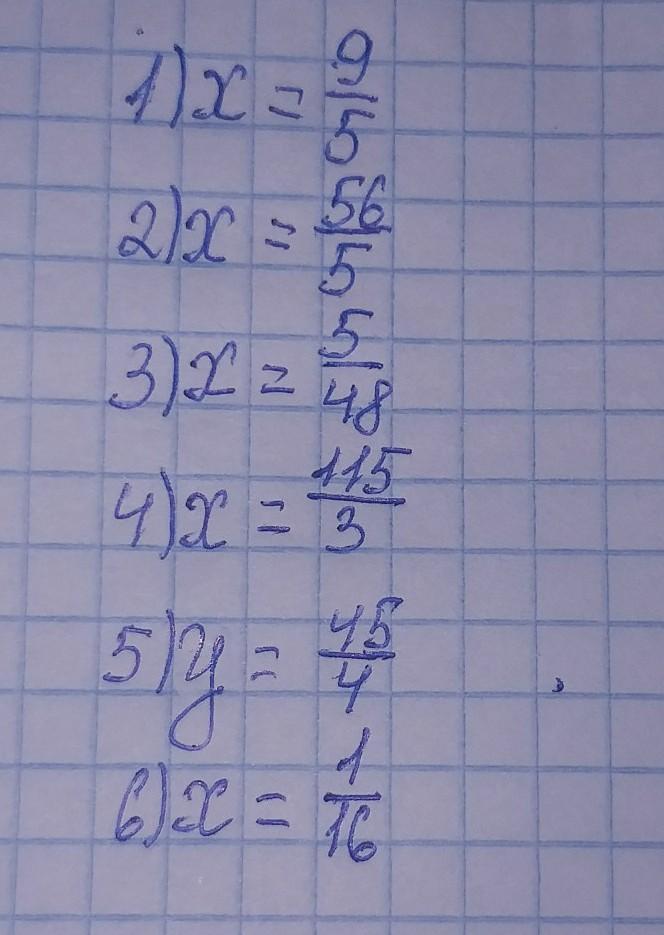 1) x = 9/5
2) x = 56/5
3) x = 5/48
4) x = 115/3
5) y = 45/4
6) x = 1/16